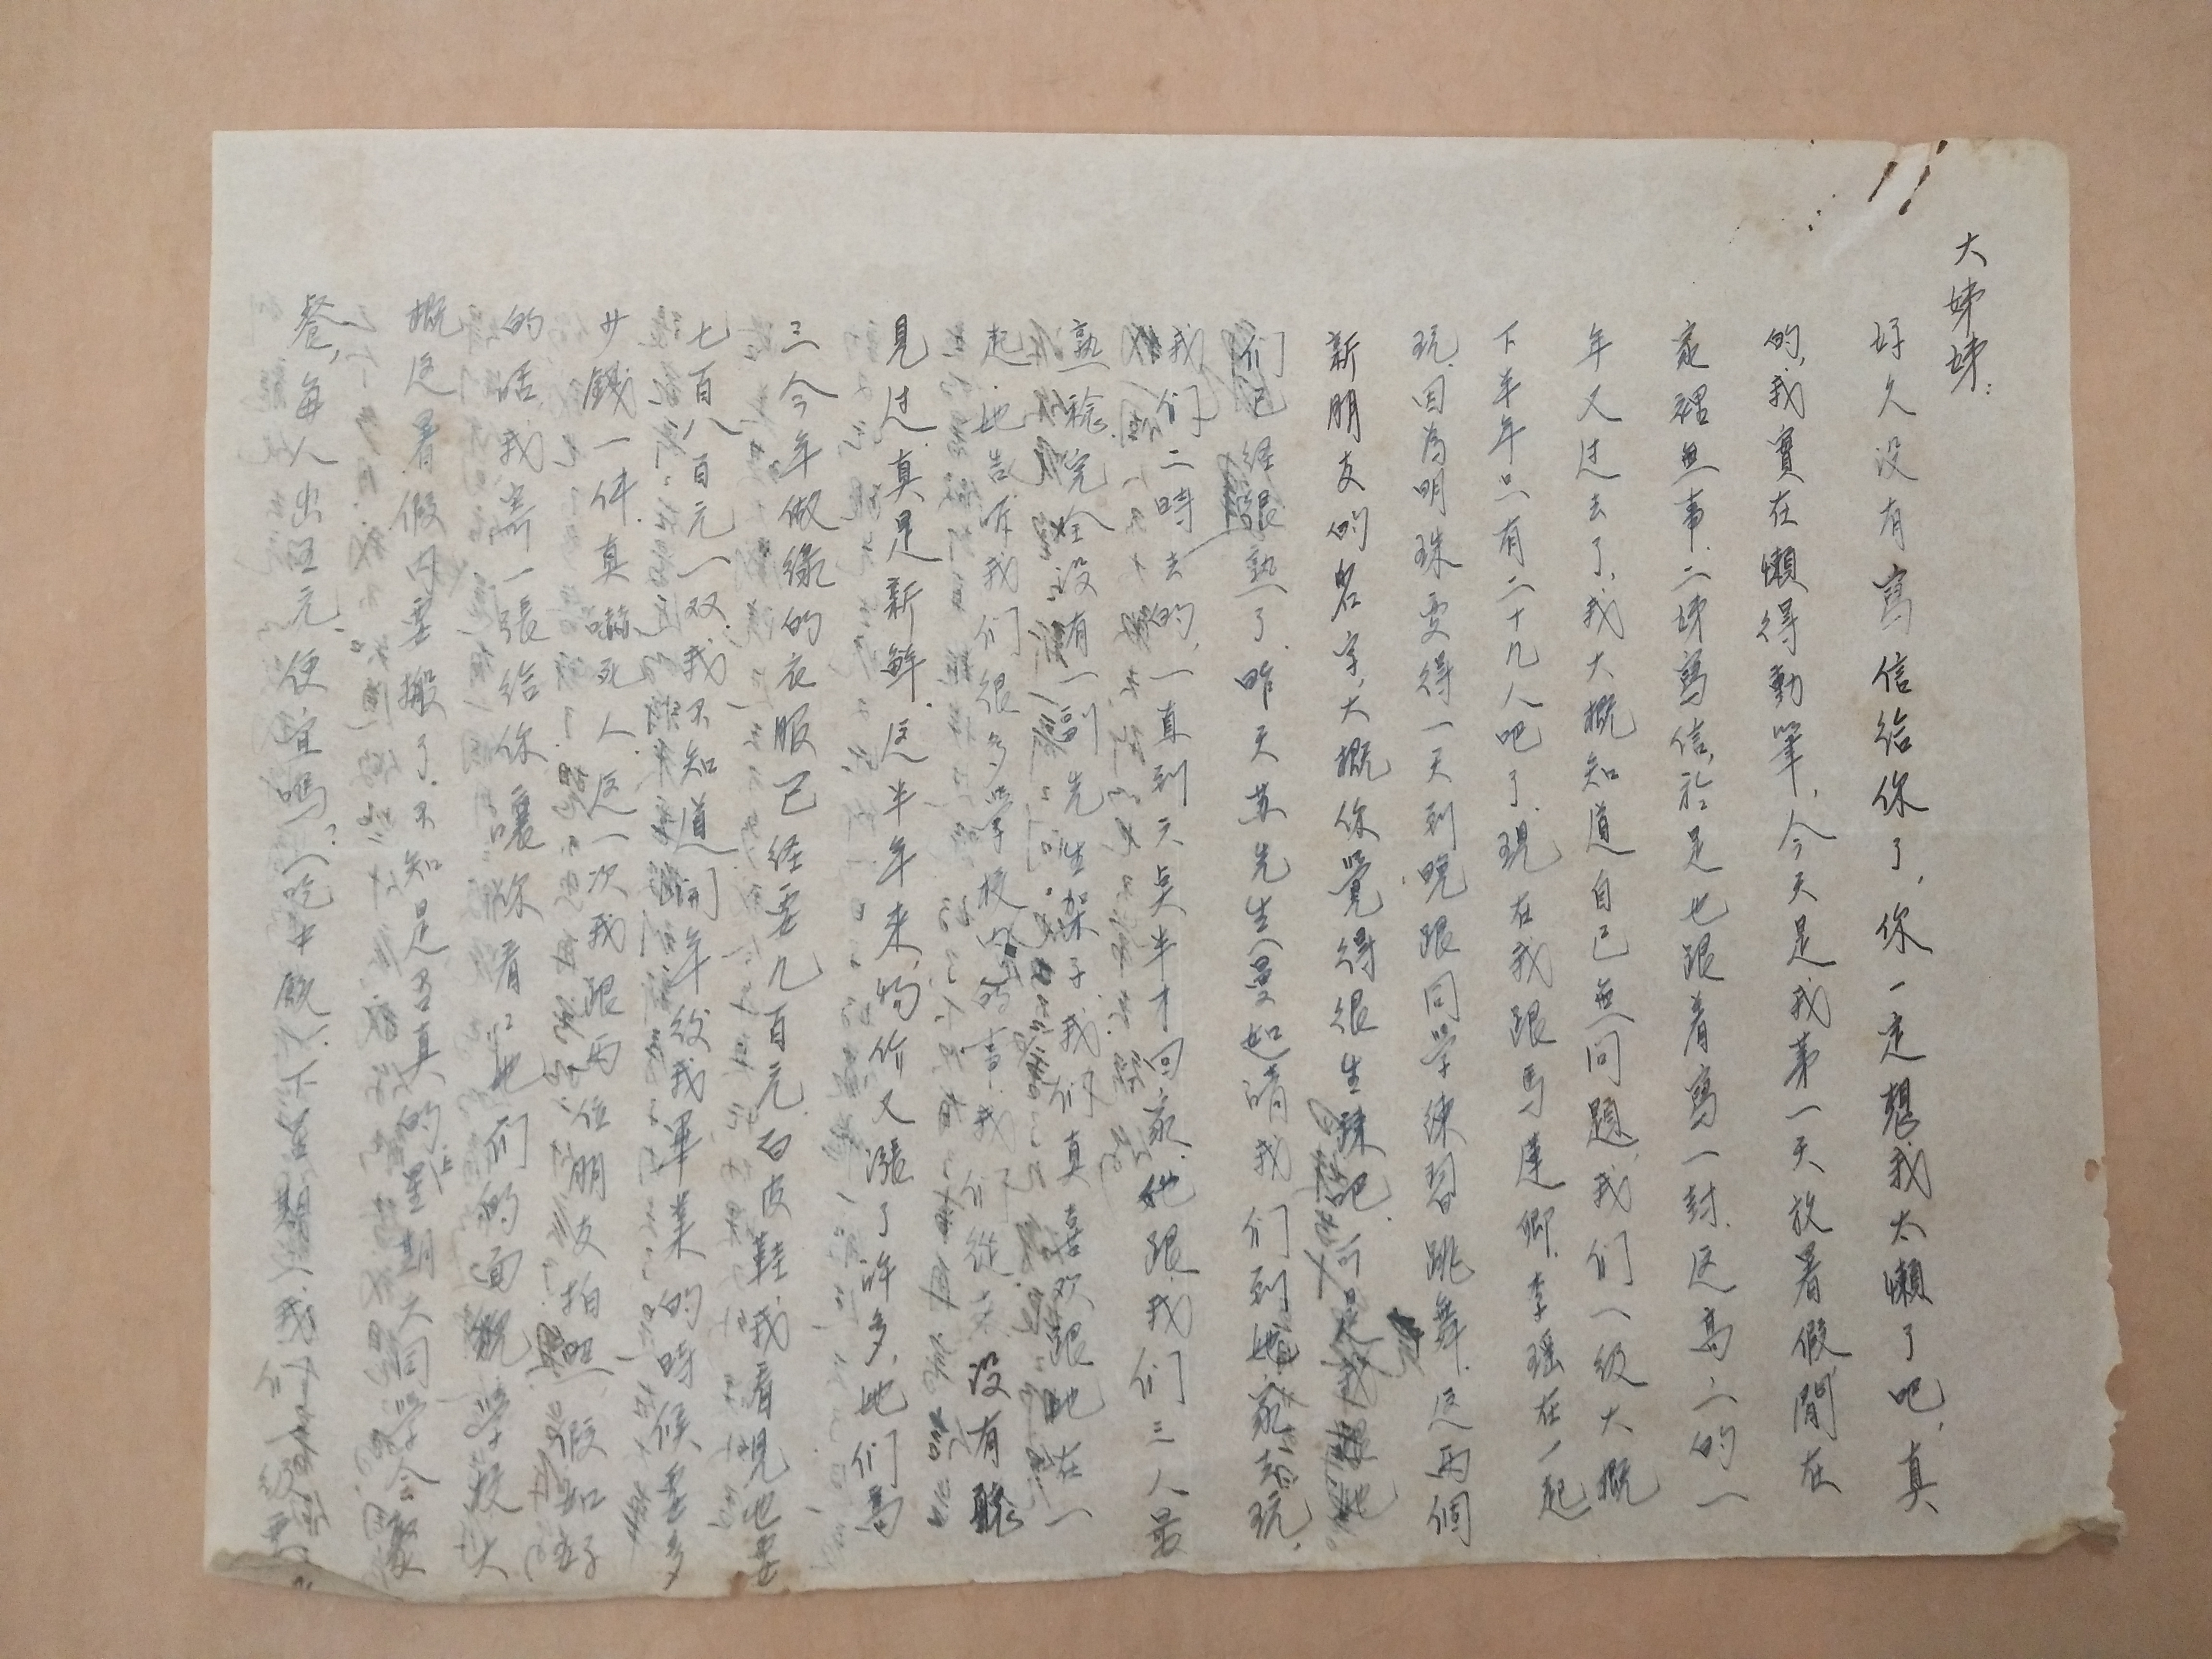 大姊姊：
好久没有寫信给你了，你一定想我太懶了吧，真
的，我實在懶得動筆，今天是我第一天放暑假閒在
家裡無事，二姊寫信，於是也跟着寫一封，这高二的一
年又过去了，我大概知道自己無问题，我们一级大概
下半年只有二十九人吧了，現在我跟馬蓮卿，李瑶在一起
玩，因為明珠要得一天到晚跟同学練習跳舞，这两個
新朋友的名字，大概你覺得很生疎吧，可是我跟她
们已经很熟了，昨天苏先生（曼如）請我们到她家去玩，
我们二時去的，一直到六点半才回家，她跟我们三人最
熟稔，完全没有一副先生架子，我们真喜欢跟她在一
起，她告诉我们很多学校内的事，我们從来没有聽
見过，真是新鮮，这半年来物价又漲了许多，她们高
三今年做綠的衣服已经要几百元，白皮鞋，我看見也要
七百八百元一双，我不知道明年我畢業的時候要多
少錢一件，真嚇死人，这一次我跟两位朋友拍照，假如好
的话，我寄一張给你讓你看看她们的面貌，学校大
概这暑假内要搬了，不知是否真的，上星期六同学会聚
餐，每人出五元，便宜嗎？（吃中飯）下星期我们